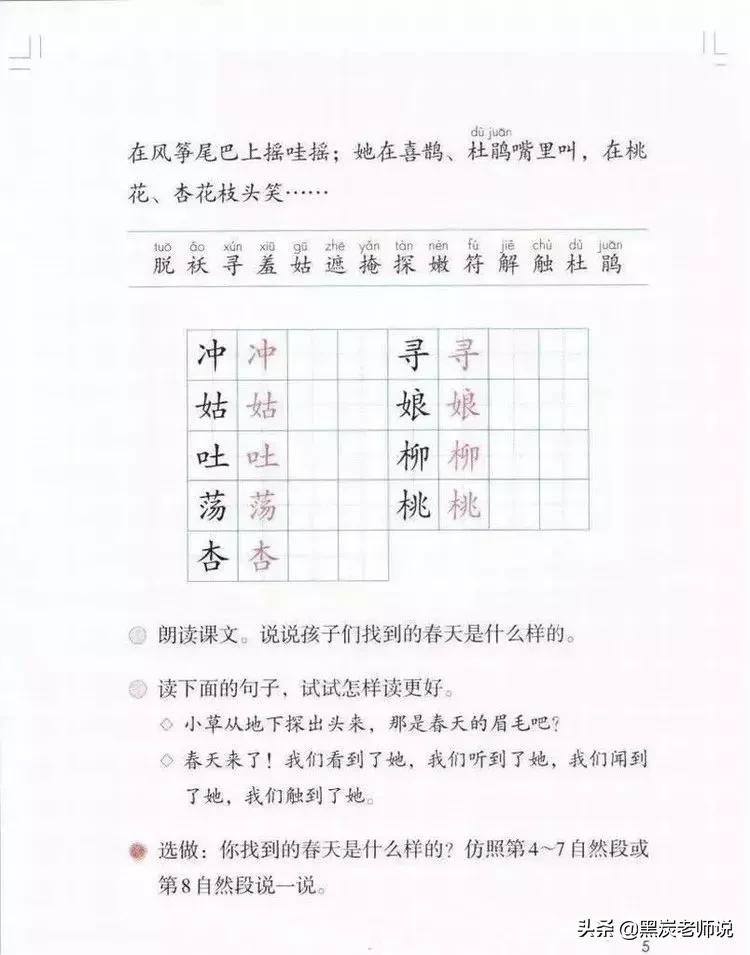 dù juān
在风筝尾巴上摇哇摇；她在喜鹊、杜鹃嘴里叫，在桃
花、杏花枝头笑……
tuō ǎo xún xiū gū zhē yǎn tàn nèn fú jiě chù dù juān
脱 袄 寻 羞 姑 遮 掩 探 嫩 符 解 触 杜 鹃
冲 冲 寻 寻
姑 姑 娘 娘
吐 吐 柳 柳
荡 荡 桃 桃
杏 杏
朗读课文。说说孩子们找到的春天是什么样的。
读下面的句子，试试怎样读更好。
◇ 小草从地下探出头来，那是春天的眉毛吧？
◇ 春天来了！我们看到了她，我们听到了她，我们闻到
了她，我们触到了她。
选做：你找到的春天是什么样的？仿照第4～7自然段或
第8自然段说一说。
头条 @黑炭老师说
5